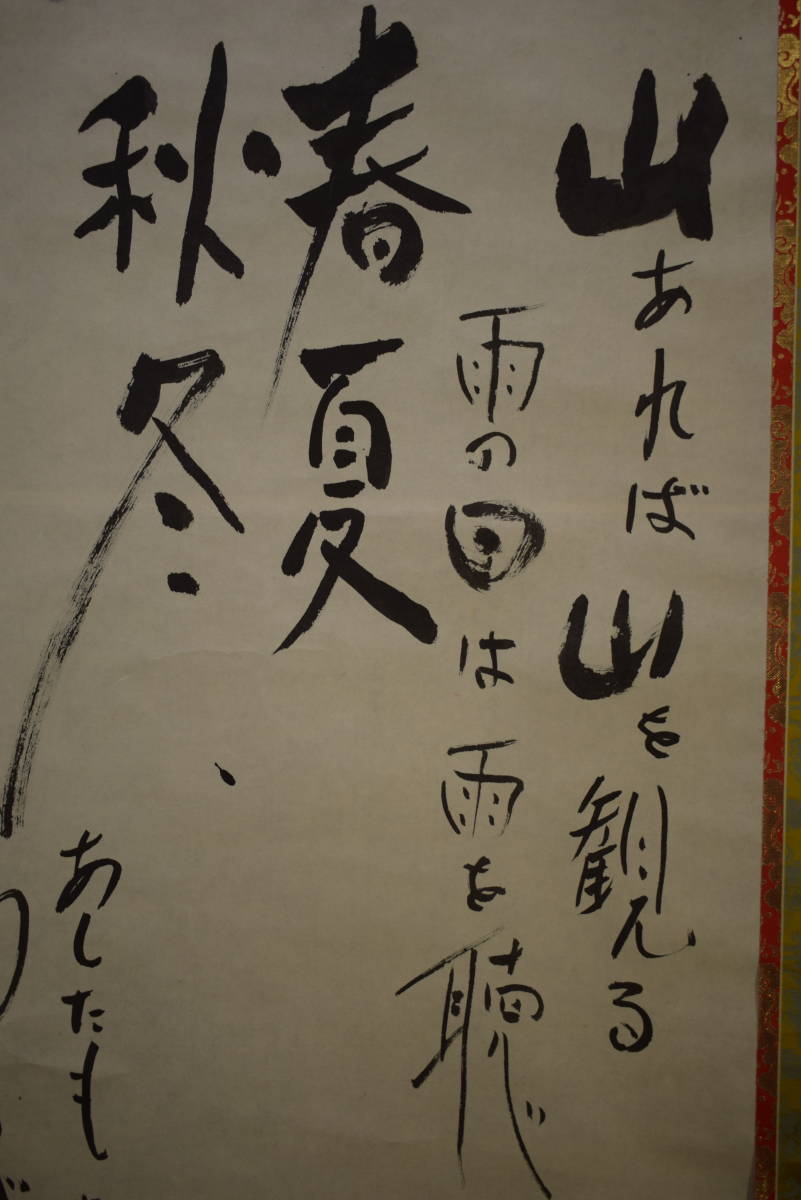 山あれば山を観る
雨の日は雨を聴く
春夏
秋冬
あしたも